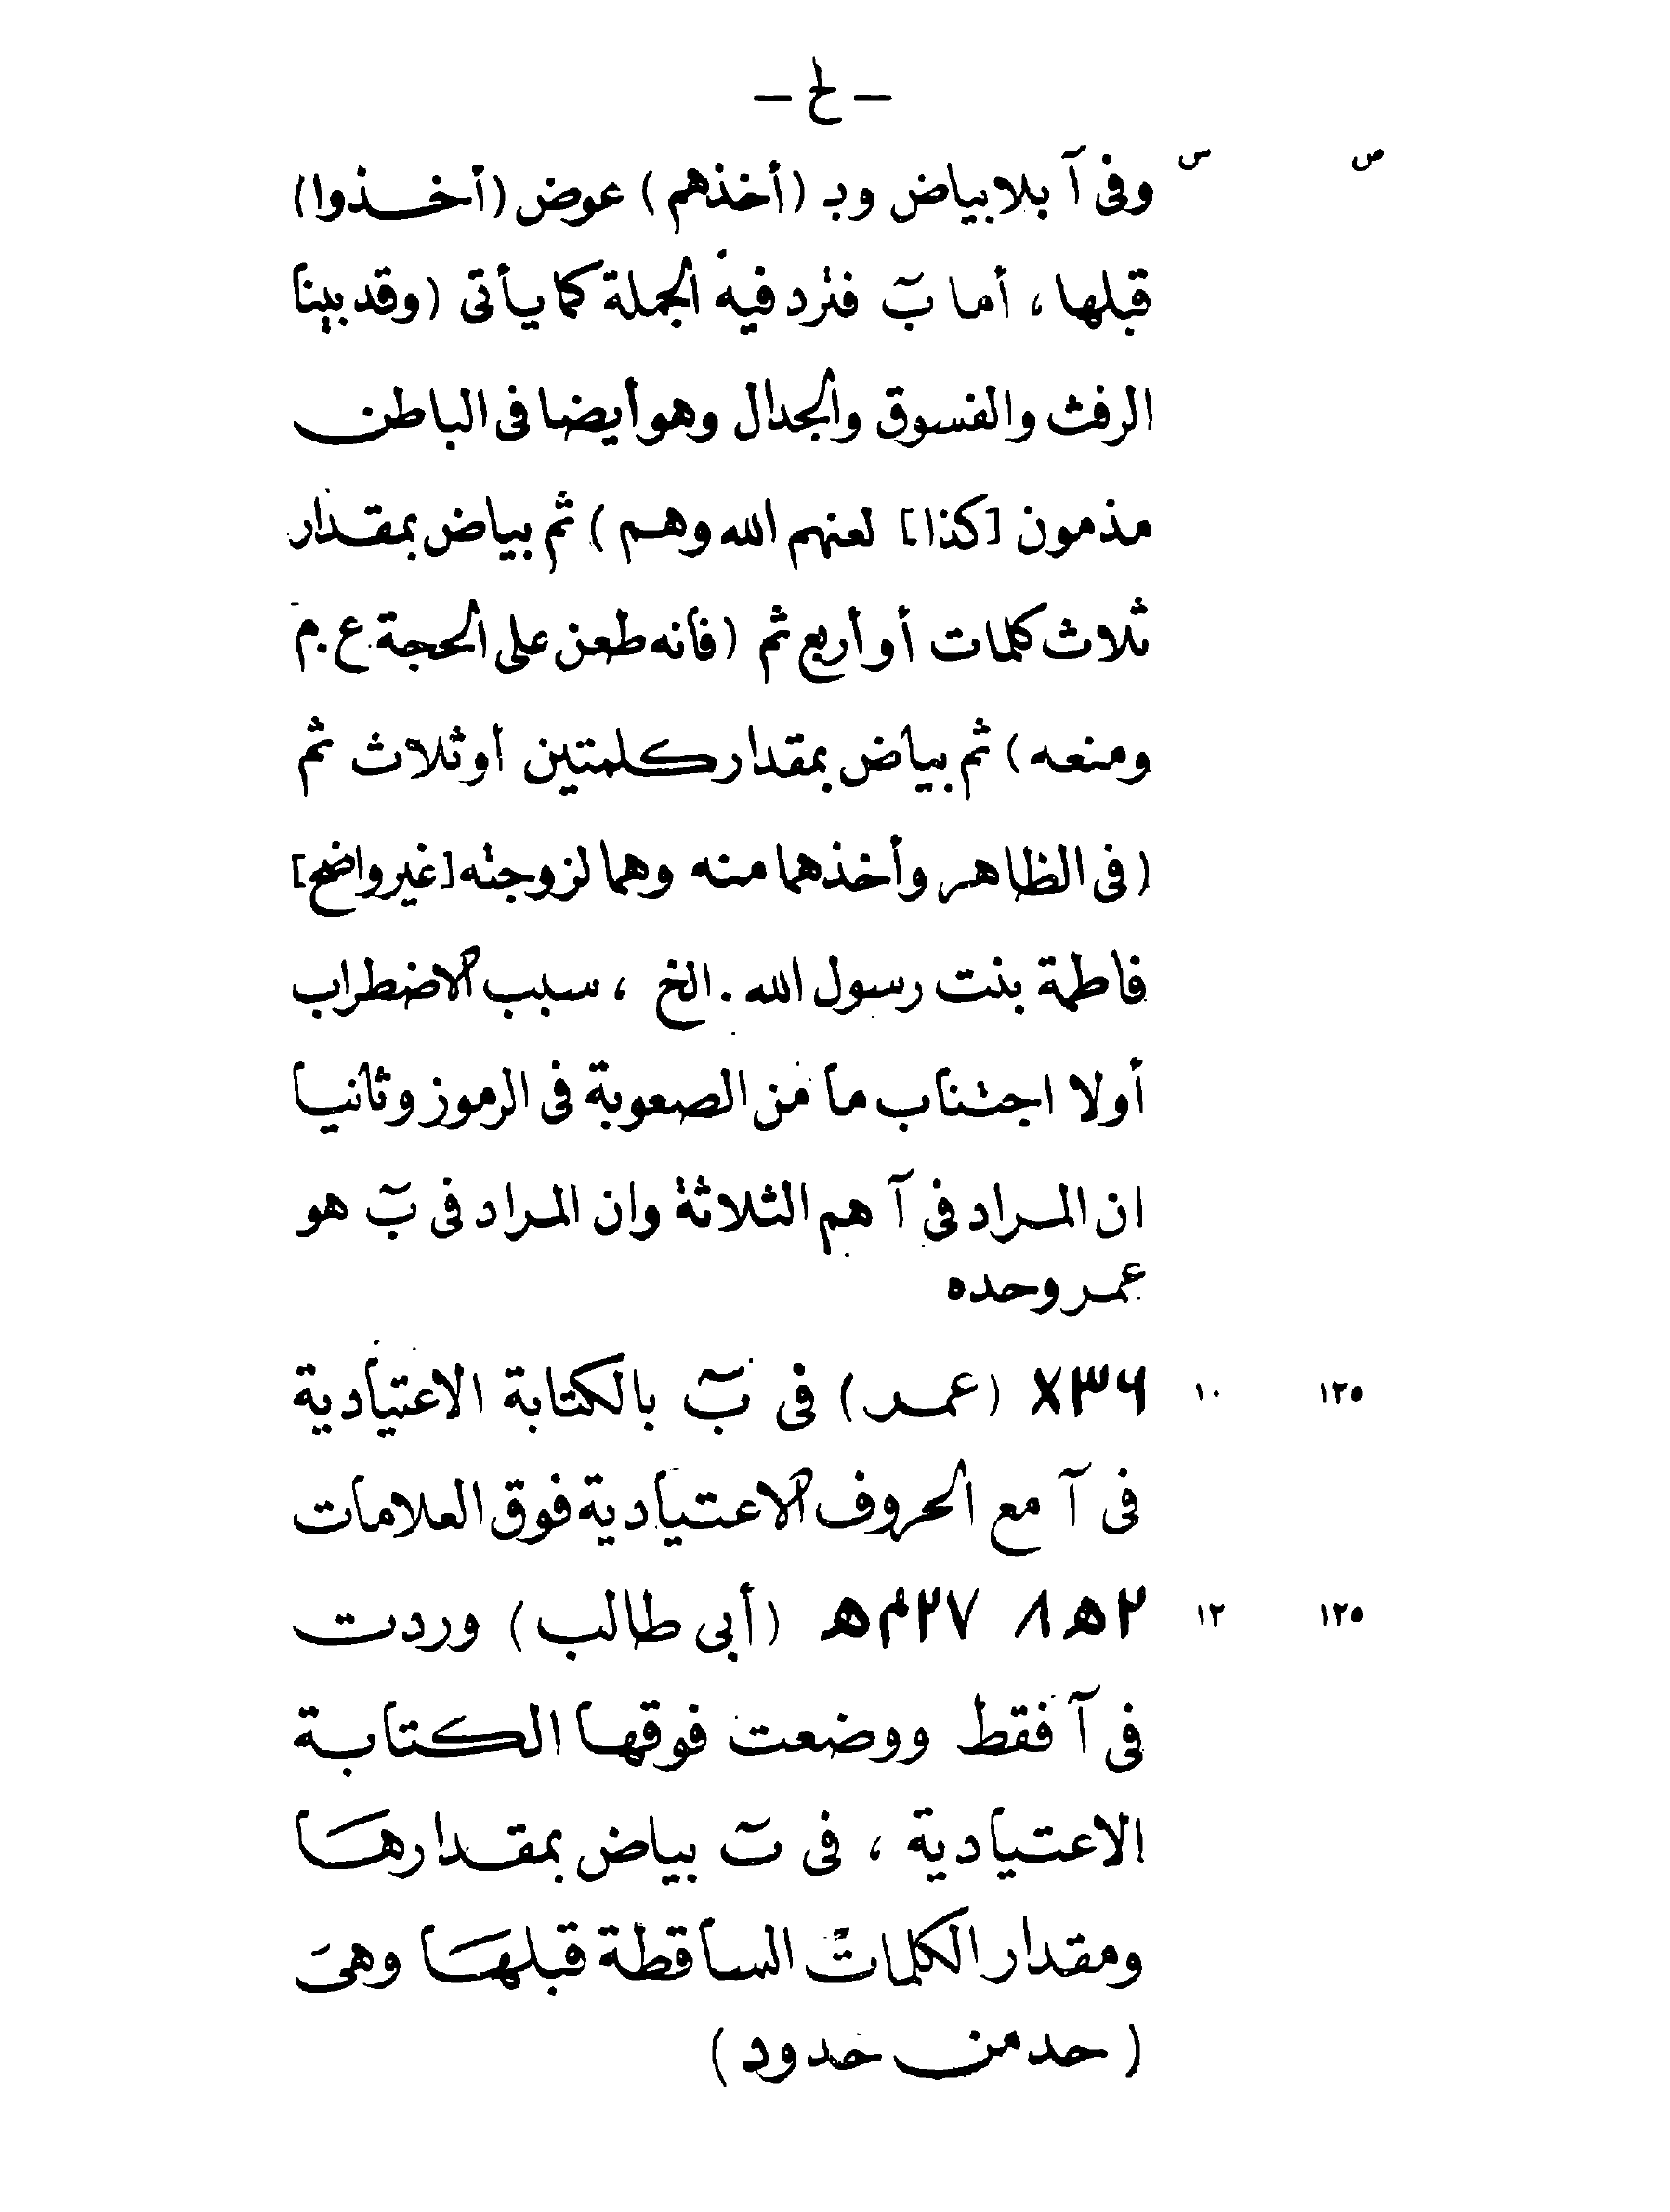 — لح —
ص س وفى آ بلا بياض وبـ (أخذهم) عوض (أخــذوا)
قبلها ، أما بٓ فترد فيه الجملة كما يأتى (وقد بينا
الرفث والفسوق والجدال وهو أيضا فى الباطن
مذمون [كذا] لعنهم الله وهم) ثم بياض بمقدار
ثلاث كلمات أو أربع ثم (فانه طعن على الحجة ع.م
ومنعه) ثم بياض بمقدار كلمتين أو ثلاث ثم
(فى الظاهر وأخذهما منه وهما لزوجته [غير واضح]
فاطمة بنت رسول الله . الخ ، سبب الاضطراب
أولا اجتناب ما من الصعوبة فى الرموز وثانيا
ان المراد فى آ هم الثلاثة وان المراد فى بٓ هو
عمر وحده
١٢٥ ١٠ (عمر) فى بٓ بالكتابة الاعتيادية
فى آ مع الحروف الاعتيادية فوق العلامات
١٢٥ ١٢ (أبى طالب) وردت
فى آ فقط ووضعت فوقها الكتابة
الاعتيادية ، فى بٓ بياض بمقدارها
ومقدار الكلمات الساقطة قبلها وهى
(حد من حدود)